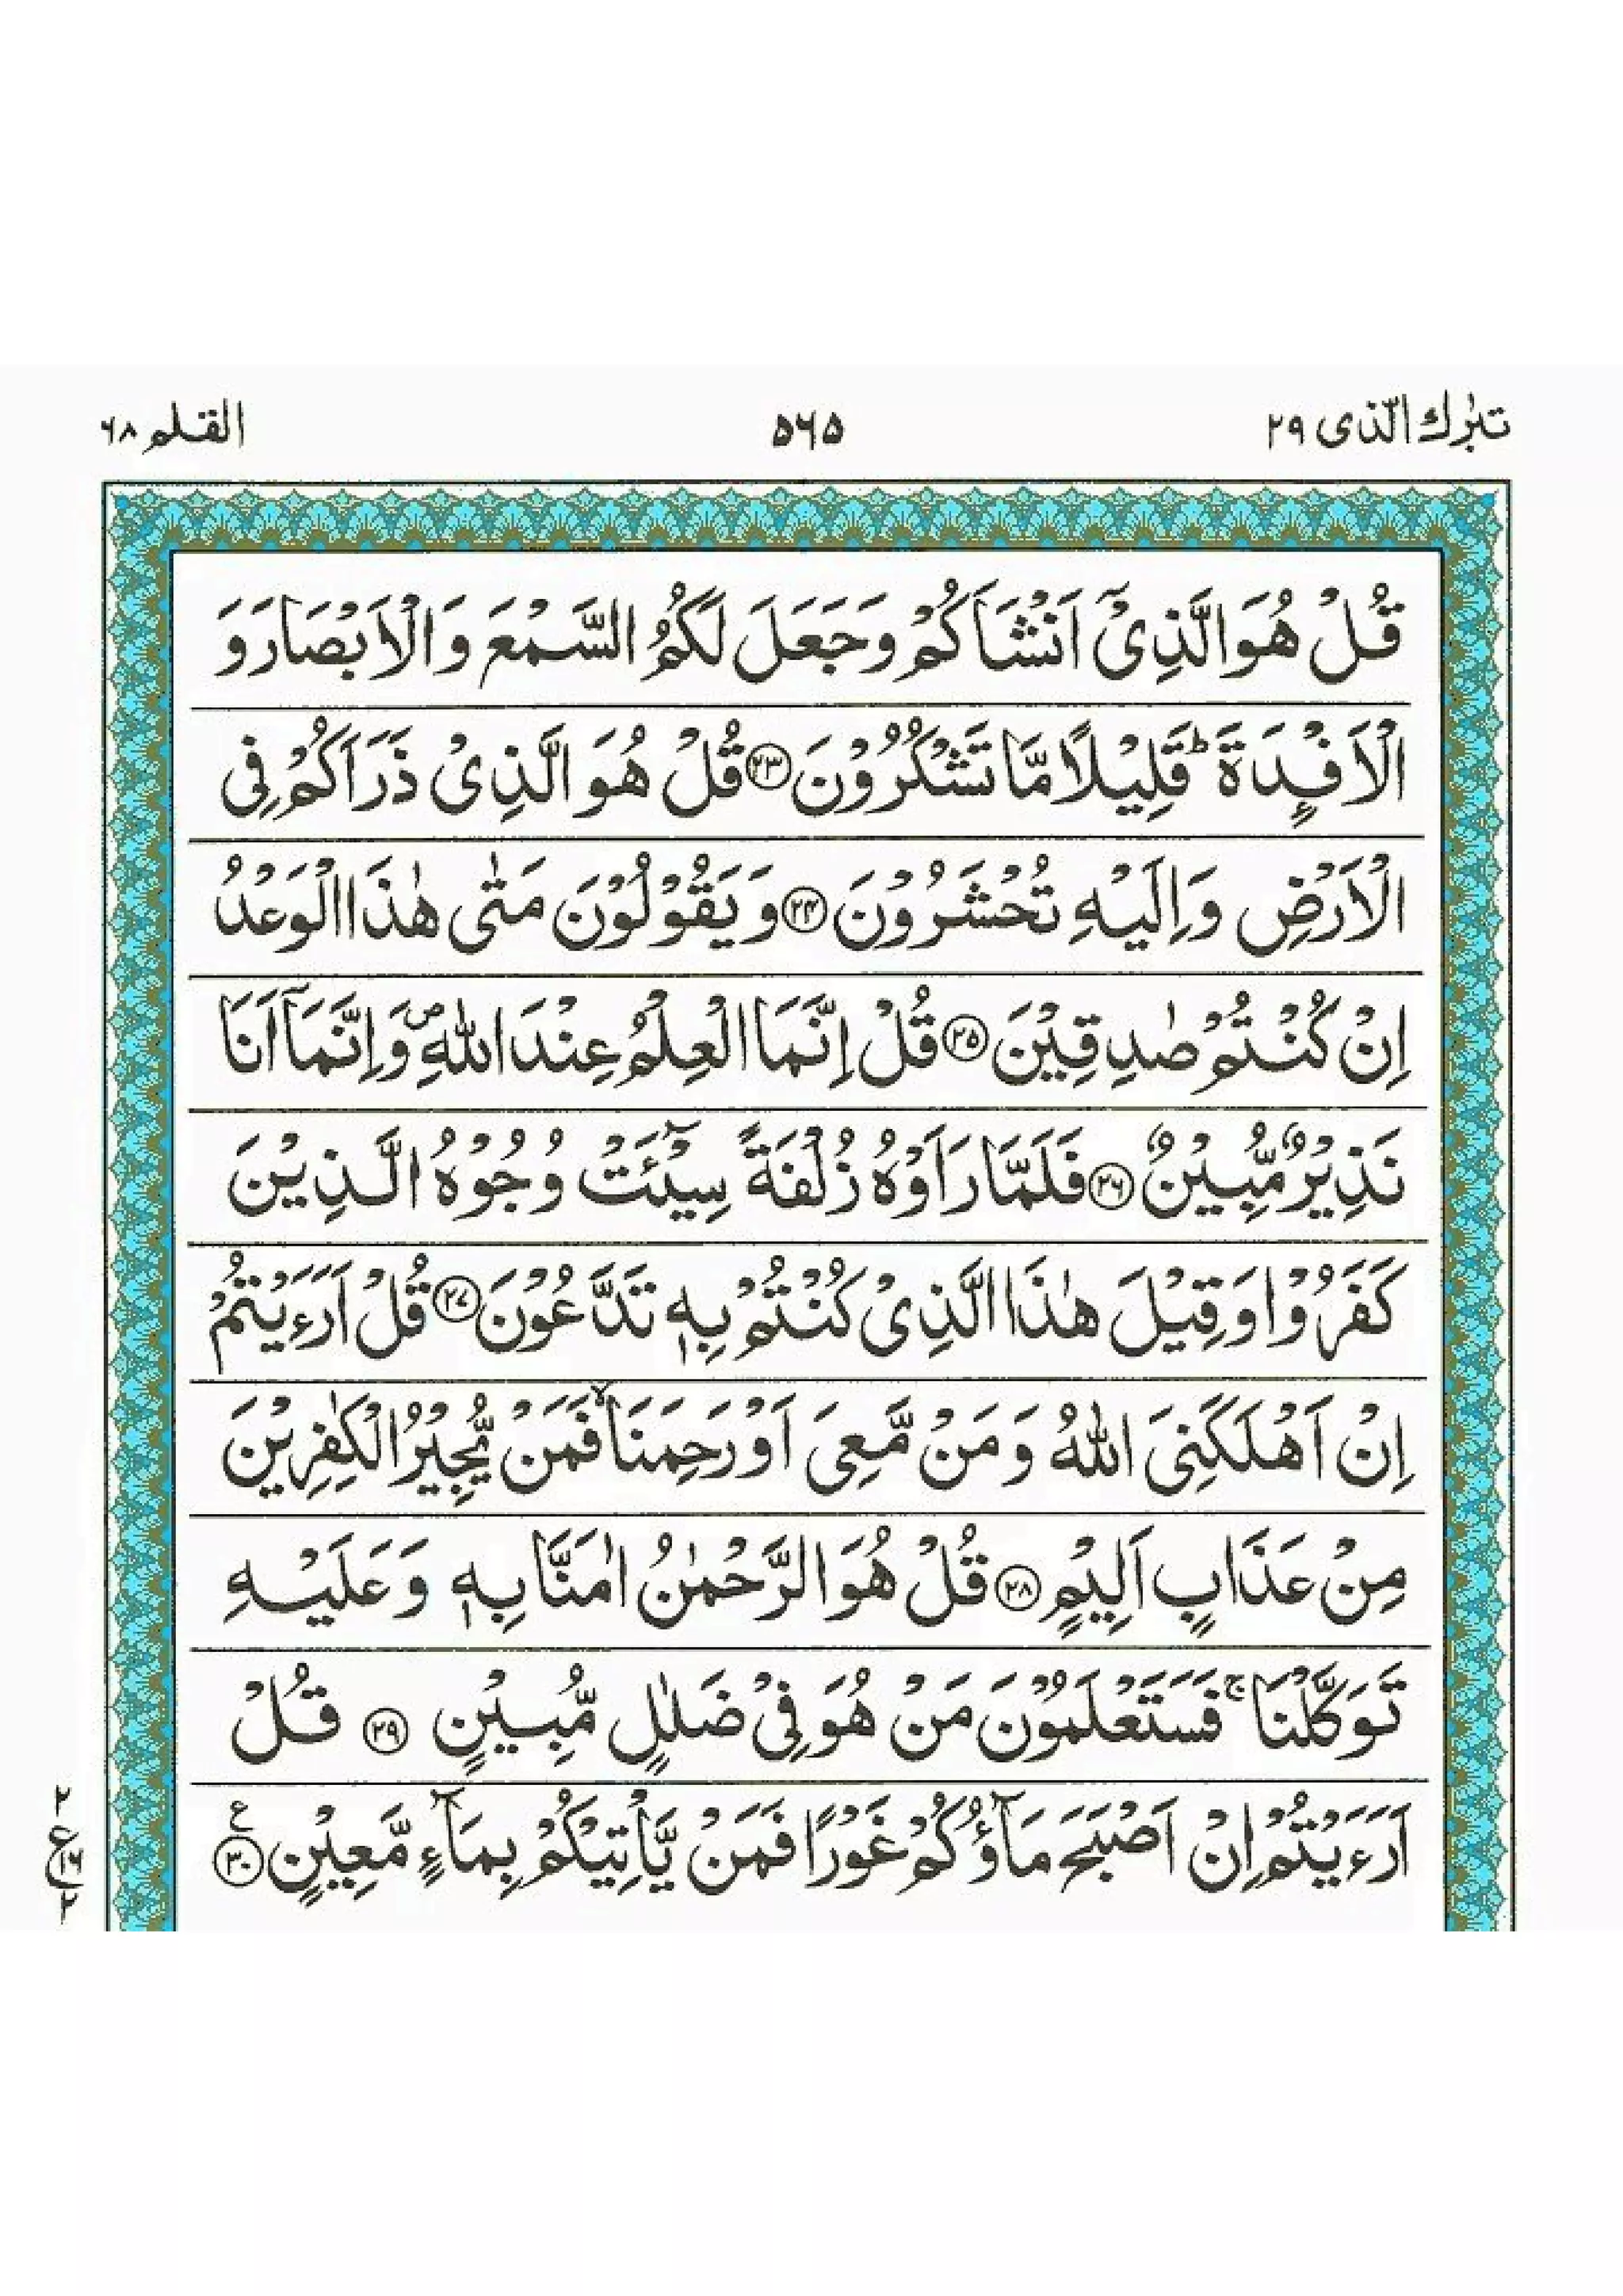 تبٰرك الّذی ۲۹
۵۶۵
القلم ۶۸
قُلْ هُوَ الَّذِیْۤ اَنْشَاَكُمْ وَ جَعَلَ لَكُمُ السَّمْعَ وَ الْاَبْصَارَ وَ
الْاَفْـِٕدَةَ ؕ قَلِیْلًا مَّا تَشْكُرُوْنَ ﴿۲۳﴾ قُلْ هُوَ الَّذِیْ ذَرَاَكُمْ فِی
الْاَرْضِ وَ اِلَیْهِ تُحْشَرُوْنَ ﴿۲۴﴾ وَ یَقُوْلُوْنَ مَتٰی هٰذَا الْوَعْدُ
اِنْ كُنْتُمْ صٰدِقِیْنَ ﴿۲۵﴾ قُلْ اِنَّمَا الْعِلْمُ عِنْدَ اللّٰهِ ۪ وَ اِنَّمَاۤ اَنَا
نَذِیْرٌ مُّبِیْنٌ ﴿۲۶﴾ فَلَمَّا رَاَوْهُ زُلْفَةً سِیْٓـَٔتْ وُجُوْهُ الَّذِیْنَ
كَفَرُوْا وَ قِیْلَ هٰذَا الَّذِیْ كُنْتُمْ بِهٖ تَدَّعُوْنَ ﴿۲۷﴾ قُلْ اَرَءَیْتُمْ
اِنْ اَهْلَكَنِیَ اللّٰهُ وَ مَنْ مَّعِیَ اَوْ رَحِمَنَا ۙ فَمَنْ یُّجِیْرُ الْكٰفِرِیْنَ
مِنْ عَذَابٍ اَلِیْمٍ ﴿۲۸﴾ قُلْ هُوَ الرَّحْمٰنُ اٰمَنَّا بِهٖ وَ عَلَیْهِ
تَوَكَّلْنَا ۚ فَسَتَعْلَمُوْنَ مَنْ هُوَ فِیْ ضَلٰلٍ مُّبِیْنٍ ﴿۲۹﴾ قُلْ
اَرَءَیْتُمْ اِنْ اَصْبَحَ مَآؤُكُمْ غَوْرًا فَمَنْ یَّاْتِیْكُمْ بِمَآءٍ مَّعِیْنٍ ﴿۳۰﴾ ع
۲
ع
۱۶
۲